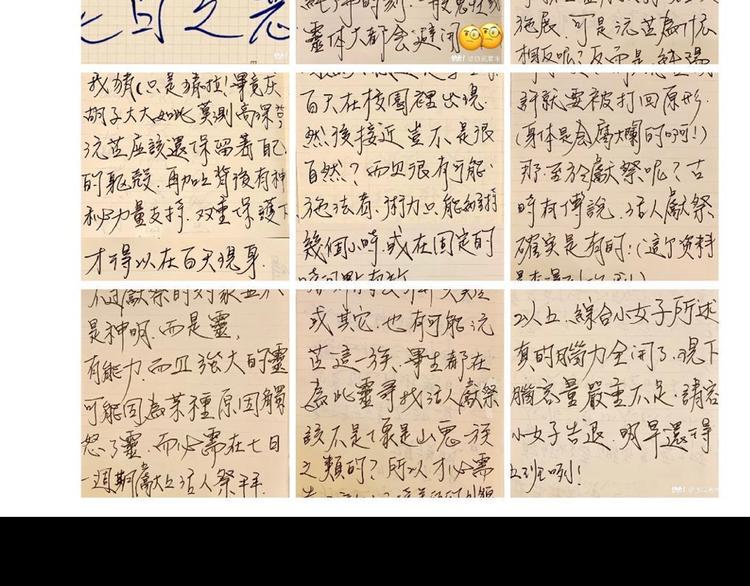 七日之
靈体大都會避開
施展,可是沅芷為什麼
相反呢?反而是
我猜(只是猜啦!畢竟灰
胡子大大如此莫測高深)
沅芷應該還保留著自己
的軀殼,再加上背後有神
秘力量支持,双重保護下
才得以在百天現身.
百天在校園裡出現
然後接近豈不是很
自然?而且很有可能
施法者,術力只能維持
幾個小時,或在固定的
就要被打回原形.
(身体是會腐爛的啊!)
那,至於獻祭呢?古
時有傳說,活人獻祭
確實是有的:(這个资料
不過獻祭的对象並不
是神明,而是靈,
有能力,而且強大的靈
可能因為某種原因觸
怒了靈,而必需在七日
一週期獻上活人祭拜.
或其它,也有可能沅
芷這一族,畢生都在
為此靈尋找活人獻祭
該不是像是山鬼一族
之類的?所以才必需
以上,綜合小女子所述
真的腦力全開了,現下
腦容量嚴重不足,請容
小女子告退,明早還得
上班咧!